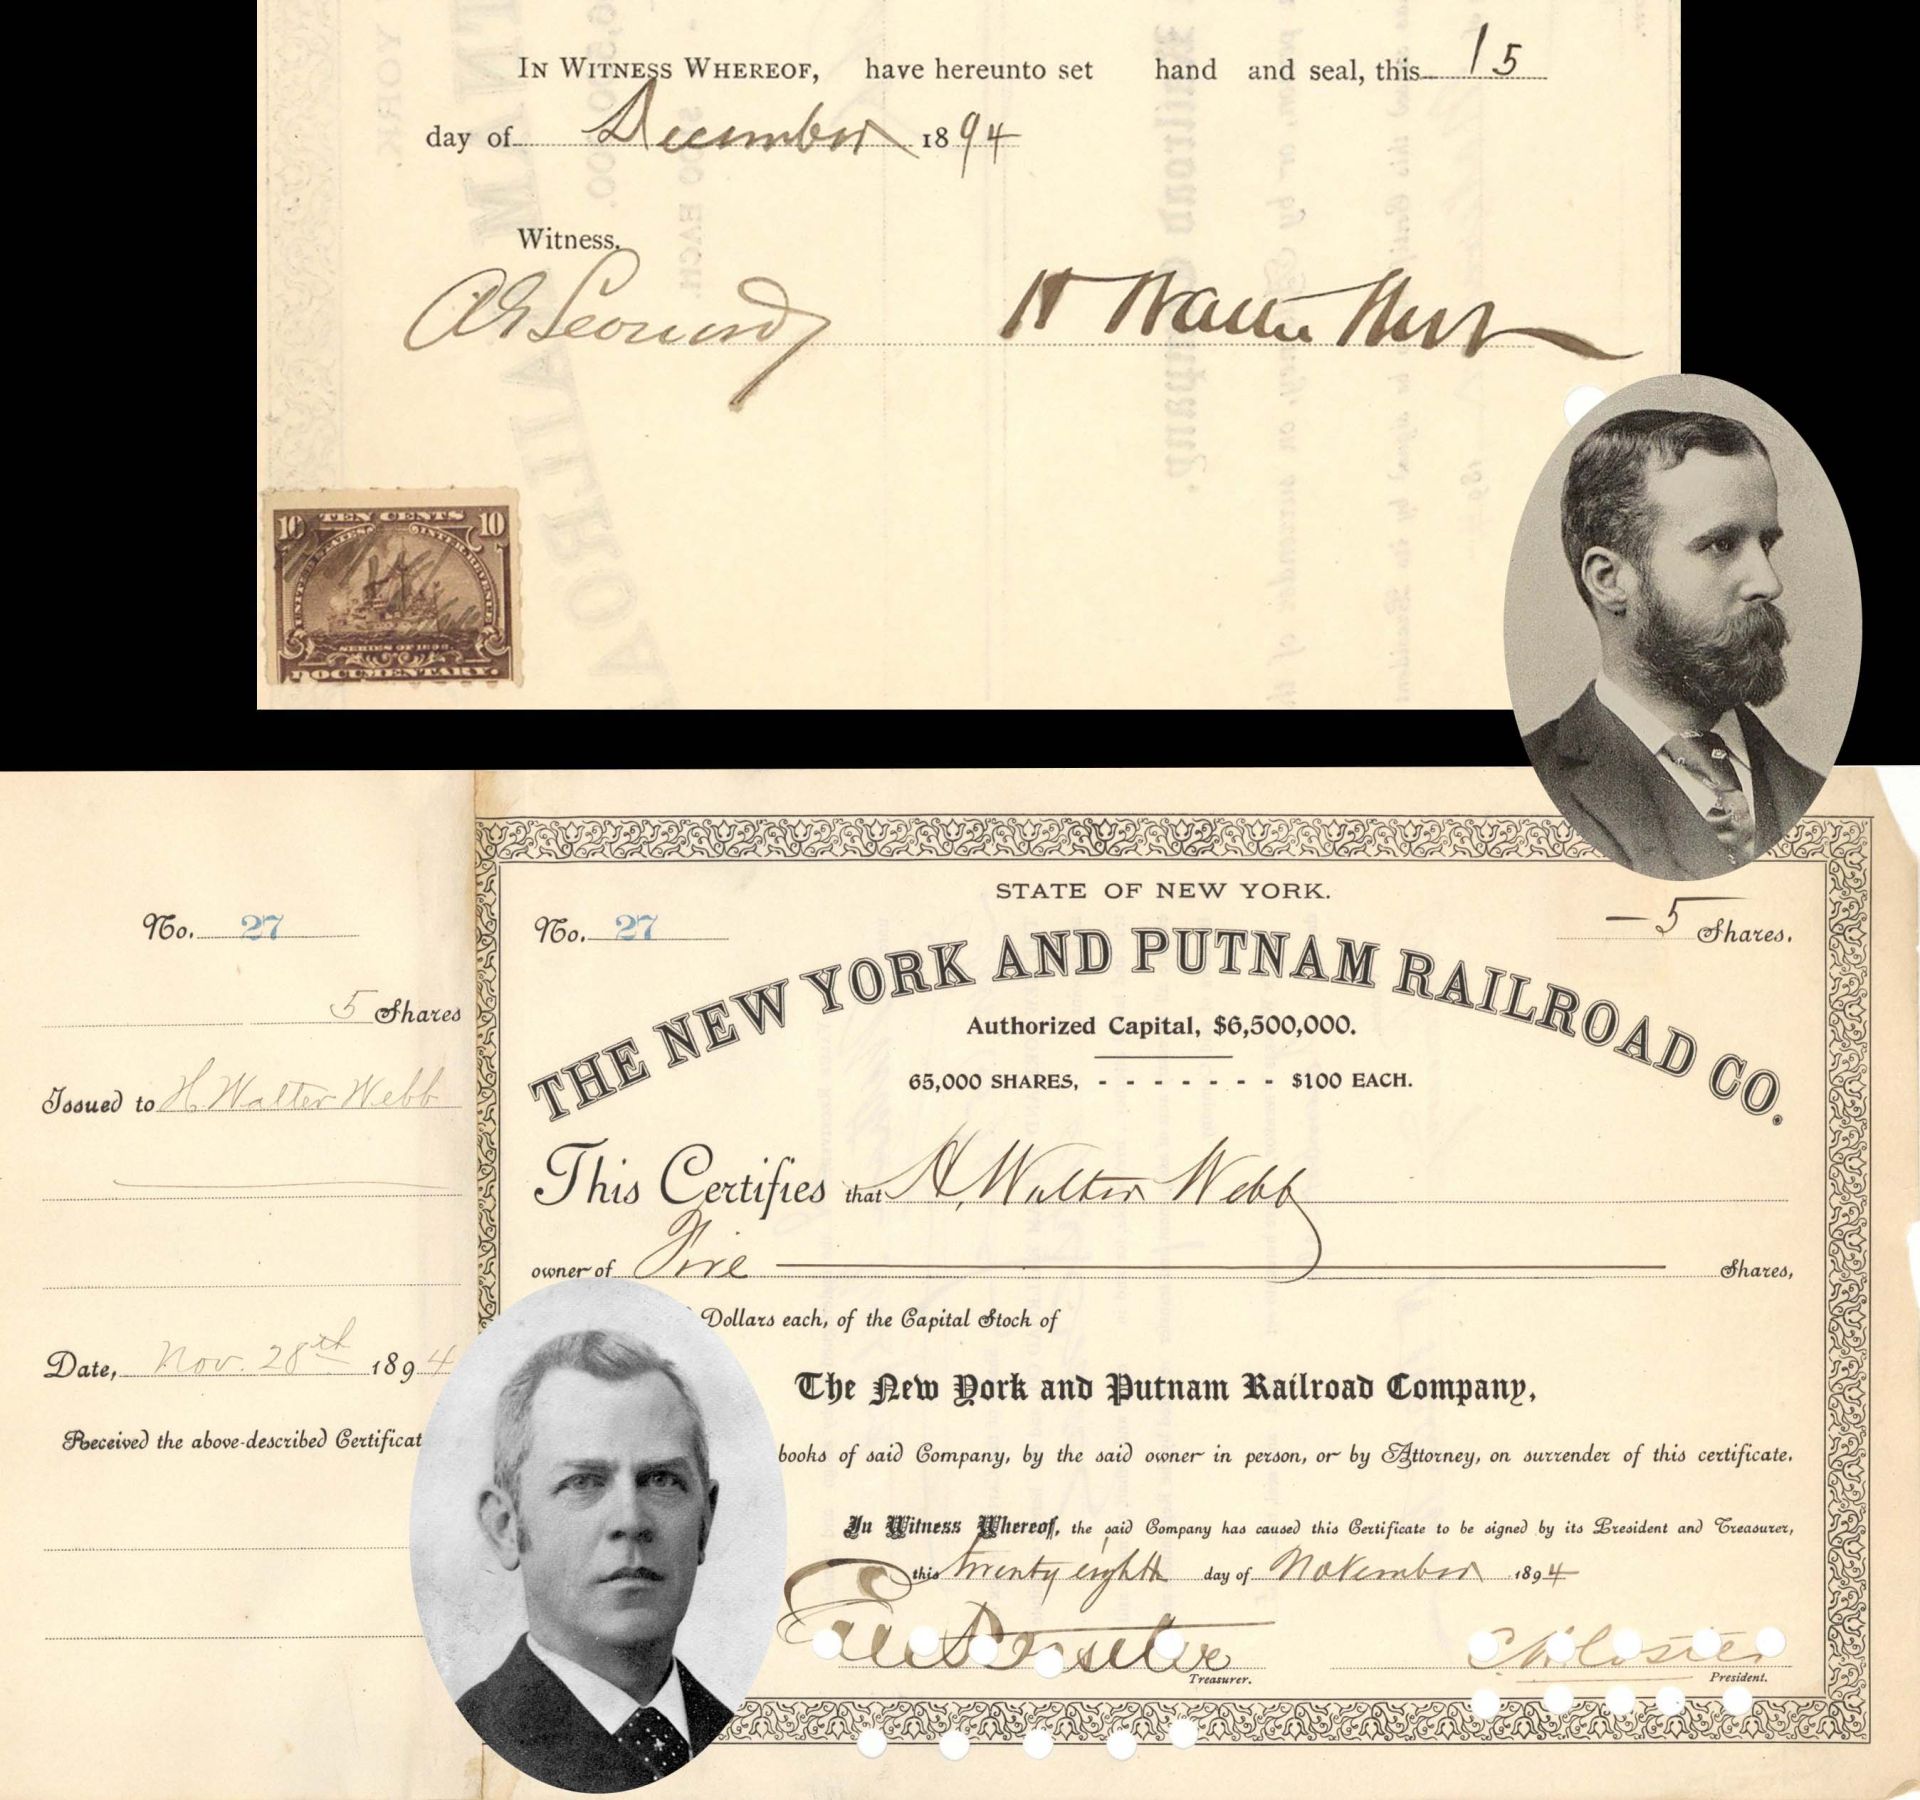 IN WITNESS WHEREOF, have hereunto set hand and seal, this 15
day of December 1894
Witness.
H Walter Webb
10 TEN CENTS 10
UNITED STATES INTER. REVENUE
SERIES OF 1898.
DOCUMENTARY.
No. 27
5 Shares
Issued to H. Walter Webb
Date, Nov. 28th 1894
Received the above-described Certificat
STATE OF NEW YORK.
No. 27
—5 Shares.
THE NEW YORK AND PUTNAM RAILROAD CO.
Authorized Capital, $6,500,000.
65,000 SHARES, - - - - - - - $100 EACH.
This Certifies that H. Walter Webb
owner of Five Shares,
Dollars each, of the Capital Stock of
The New York and Putnam Railroad Company,
books of said Company, by the said owner in person, or by Attorney, on surrender of this certificate.
In Witness Whereof, the said Company has caused this Certificate to be signed by its President and Treasurer,
this twenty eighth day of November 1894
Treasurer.
C H Coster
President.